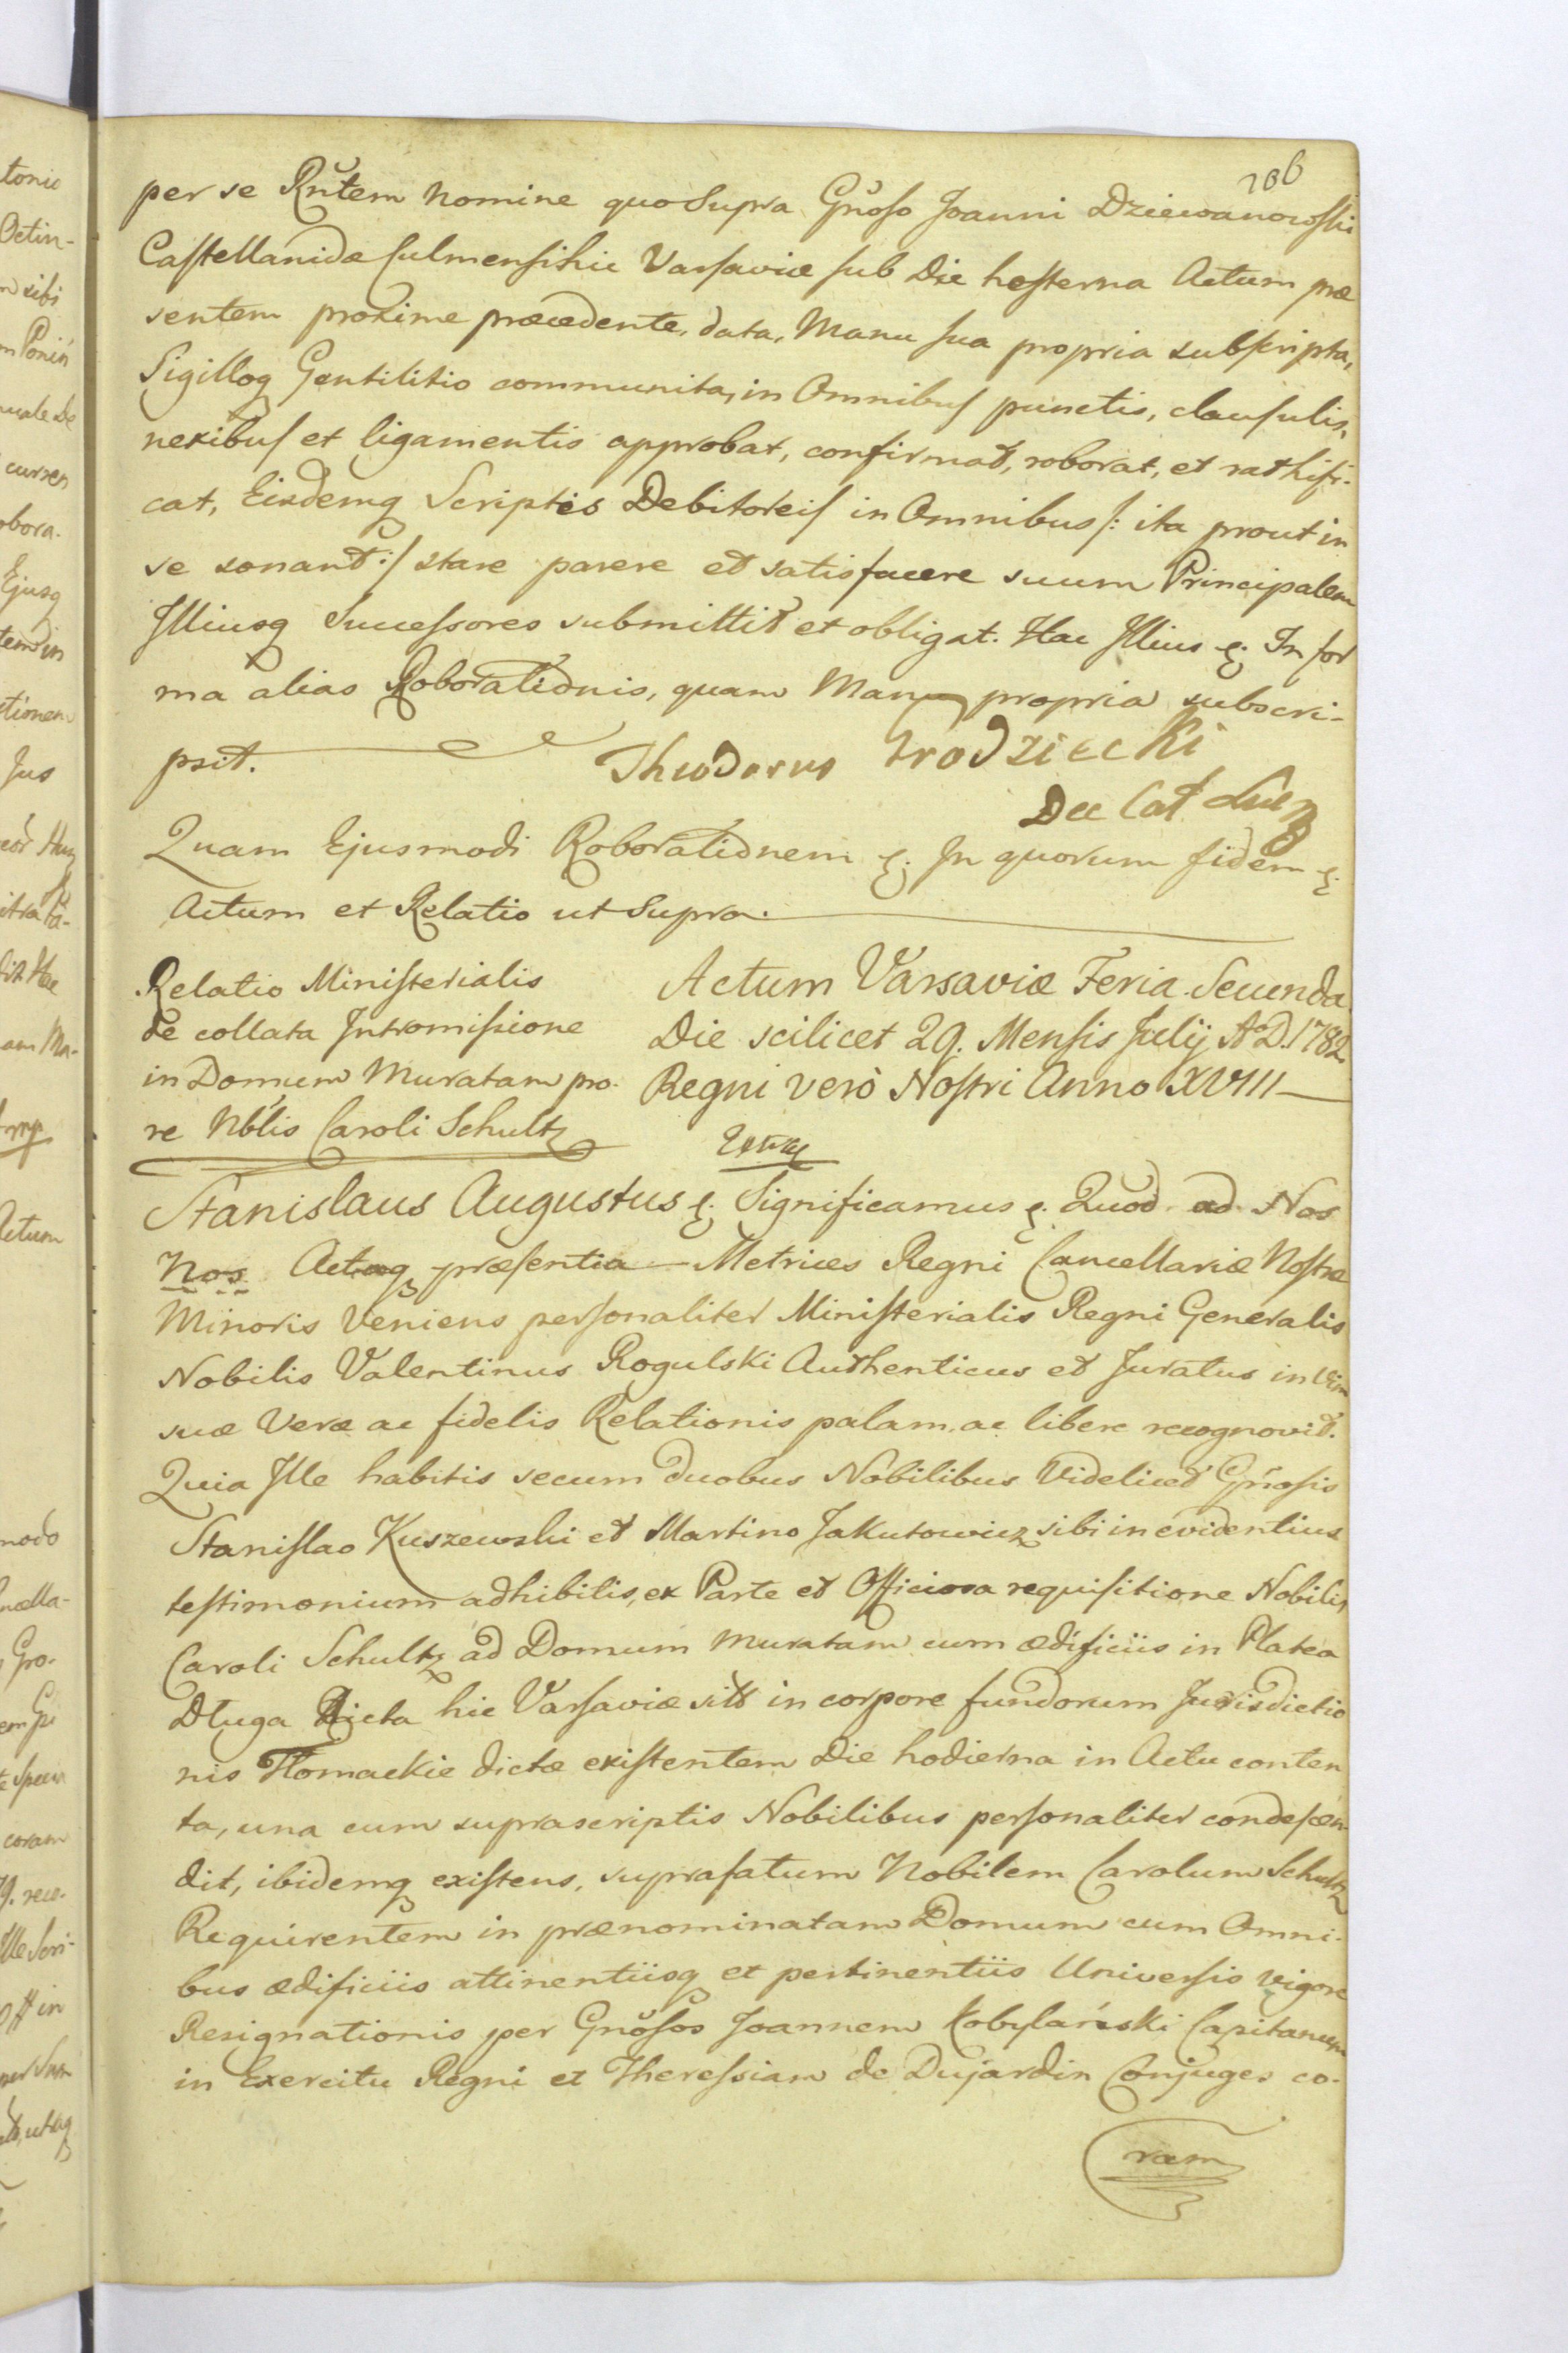 106
per se Rñtem nomine quo Supra Gñoso Joanni Dziewanowski
Castellanidæ Culmensi hic Varsaviæ sub Die hesterna Actum præ
sentem proxime præcedente, data, Manu sua propria subscripta,
Sigilloq Gentilitio communita, in Omnibus punctis, clausulis,
nexibus et ligamentis approbat, confirmat, roborat, et rathifi-
cat, Eisdemq Scriptis Debitoreis in Omnibus /: ita prout in
se sonant :/ stare parere et satisfacere suum Principalem
Illiusq Successores submittit et obligat. Hac Illius &. In for
ma alias Roborationis, quam Manu propria subscri-
psit.
Theodorus Grodziecki
Quam Ejusmodi Roborationem &. In quorum fidem &.
Actum et Relatio ut Supra.
Relatio Ministerialis
de collata Intromissione
in Domum Muratam pro.
re Nblis Caroli Schultz
Actum Varsaviæ Feria Secunda
Die scilicet 29. Mensis Julij A D. 1782
Regni verò Nostri Anno XVIII
Stanislaus Augustus &. Significamus &. Quod ad Nos
Nos Actaq præsentia Metrices Regni Cancellariæ Nostræ
Minoris Veniens personaliter Ministerialis Regni Generalis
Nobilis Valentinus Rogulski Authenticus et Juratus in Vim
suæ Veræ ac fidelis Relationis palam ac libere recognovit.
Quia Ille habitis secum duobus Nobilibus Videlicet Gñosis
Stanislao Kuszewski et Martino Jakutowicz sibi in evidentius
testimonium adhibitis, ex Parte et Officiosa requisitione Nobilis
Caroli Schultz ad Domum Muratam cum ædificiis in Platea
Długa Dicta hic Varsaviæ sitt in corpore fundorum Jurisdictio
nis Tłomackie dictæ existentem Die hodierna in Actu conten
ta, una cum suprascriptis Nobilibus personaliter condescen
dit, ibidemq existens, suprafatum Nobilem Carolum Schultz
Requirentem in prænominatam Domum cum Omni-
bus ædificiis attinentiisq et pertinentiis Universis vigore
Resignationis per Gñosos Joannem Kobylański Capitaneum
in Exercitu Regni et Theressiam de Dujardin Conjuges co-
ram